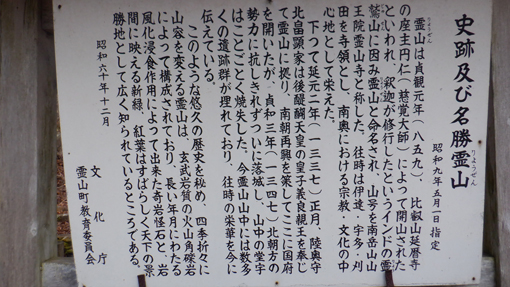 史跡及び名勝霊山
りょうぜん
昭和九年五月一日指定
霊山は貞観元年(八五九)、比叡山延暦寺
の座主円仁(慈覚大師)によって開山された
といわれ、釈迦が修行したというインドの霊
鷲山に因み霊山と命名され、山号を南岳山山
王院霊山寺と称した。往時は伊達・宇多・刈
田を寺領とし、南奥における宗教・文化の中
心地として栄えた。
下つて延元二年(一三三七)正月、陸奥守
北畠顕家は後醍醐天皇の皇子義良親王を奉じ
て霊山に拠り、南朝再興を策してここに国府
を開いたが、貞和三年(一三四七)北朝方の
勢力に抗しきれずついに落城し、山中の堂宇
はことごとく焼失した。今霊山山中には数多
くの遺跡群が埋れており、往時の栄華を今に
伝えている。
このような悠久の歴史を秘め、四季折々に
山容を変える霊山は、玄武岩質の火山角礫岩
によって構成されており、長い年月にわたる
風化浸食作用によって出来た奇岩怪石と、岩
間に映える新緑、紅葉はすばらしく天下の景
勝地として広く知られているところである。
昭和六十年十二月
文化庁
霊山町教育委員会